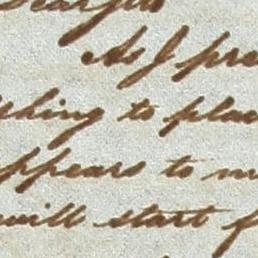 As I pre
to plac
appears to m
will start f